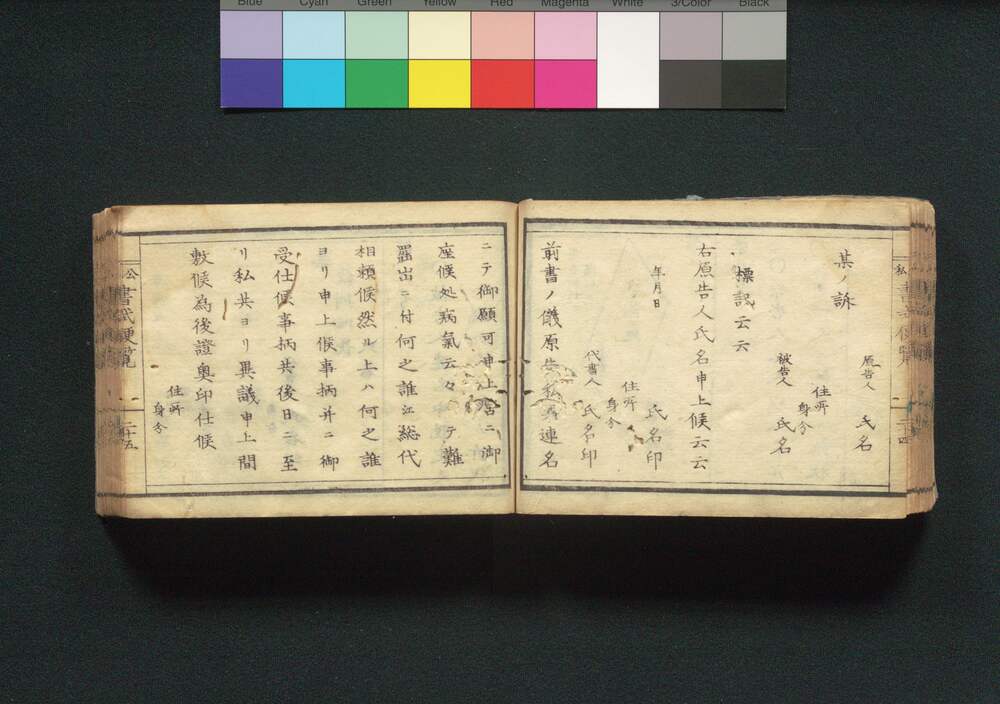 Blue Cyan Green Yellow Red Magenta White 3/Color Black
私
原告人 氏名
某ノ訴
住所
身分
被告人 氏名
標記云云
右原告人氏名申上候云云
年月日
氏名印
住所
身分
代書人 氏名印
前書ノ儀原告私共連名
ニテ御願可申上筈ニ御
座候処病氣云々 テ難
罷出ニ付何之誰江総代
相頼候然ル上ハ何之誰
ヨリ申上候事柄并ニ御
受仕候事柄共後日ニ至
リ私共ヨリ異議申上間
敷候為後證奥印仕候
住所
身分
公 書式便覧 二十五